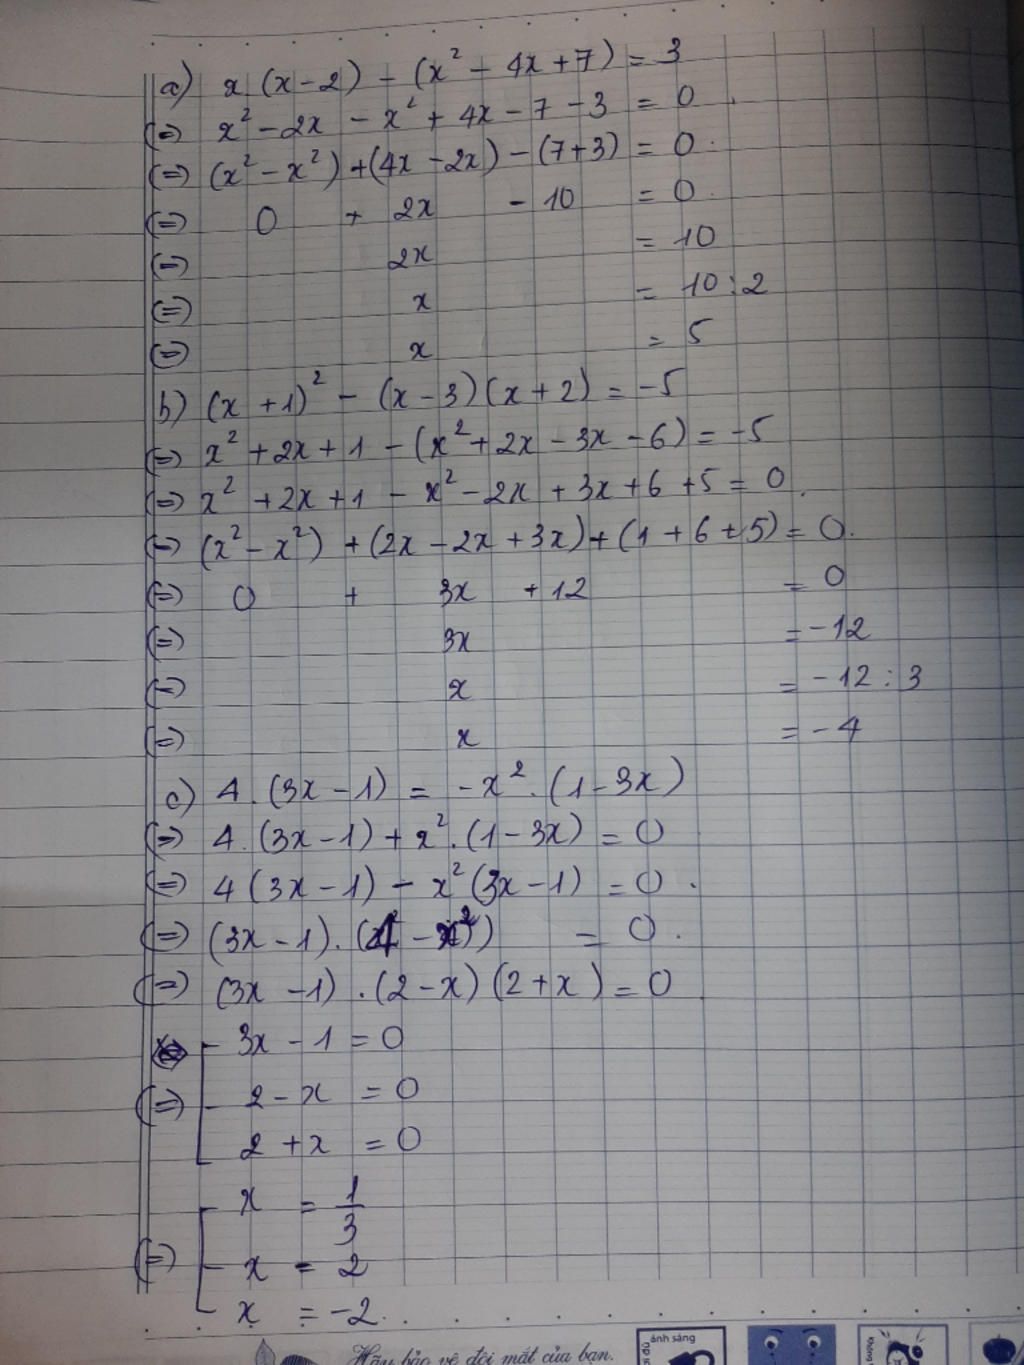 a) x (x-2) - (x² - 4x + 7) = 3
(=) x² - 2x - x² + 4x - 7 - 3 = 0
(=) (x² - x²) + (4x - 2x) - (7+3) = 0
(=) 0 + 2x - 10 = 0
(=) 2x = 10
(=) x = 10 : 2
(=) x = 5
b) (x + 1)² - (x - 3)(x + 2) = -5
(=) x² + 2x + 1 - (x² + 2x - 3x - 6) = -5
(=) x² + 2x + 1 - x² - 2x + 3x + 6 + 5 = 0
(=) (x² - x²) + (2x - 2x + 3x) + (1 + 6 + 5) = 0
(=) 0 + 3x + 12 = 0
(=) 3x = -12
(=) x = -12 : 3
(=) x = -4
c) 4. (3x - 1) = -x². (1 - 3x)
(=) 4. (3x - 1) + x². (1 - 3x) = 0
(=) 4 (3x - 1) - x² (3x - 1) = 0
(=) (3x - 1). (4 - x²) = 0
(=) (3x - 1). (2 - x) (2 + x) = 0
3x - 1 = 0
(=) 2 - x = 0
2 + x = 0
x = 1/3
(=) x = 2
x = -2
Hãy bảo vệ đôi mắt của bạn.
ánh sáng